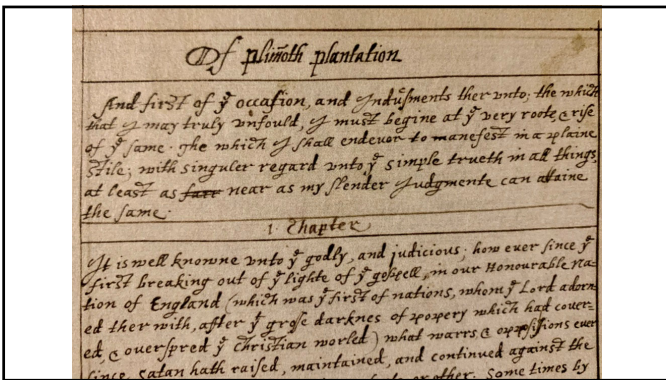 Of plim̃oth plantation
And first of yᵉ occasion, and Indusments ther vnto; the which
that I may truly vnfould, I must begine at yᵉ very roote, & rise
of yᵉ same. The which I shall endevor to manefest in a plaine
stile; with singuler regard vnto yᵉ simple trueth in all things,
at least as farr near as my slender Judgmente can attaine
the same.
1. Chapter
It is well knowne vnto yᵉ godly, and judicious; how ever since yᵉ
first breaking out of yᵉ lighte of yᵉ gospell, in our Honourable Na-
tion of England (which was yᵉ first of nations, whom yᵉ Lord adorn-
ed ther with, after yᵉ grosse darknes of popery which had cover-
ed, & overspred yᵉ Christian worled) what warrs, & oppossitions ever
since, Satan hath raised, maintained, and continued against the
or other. Some times by